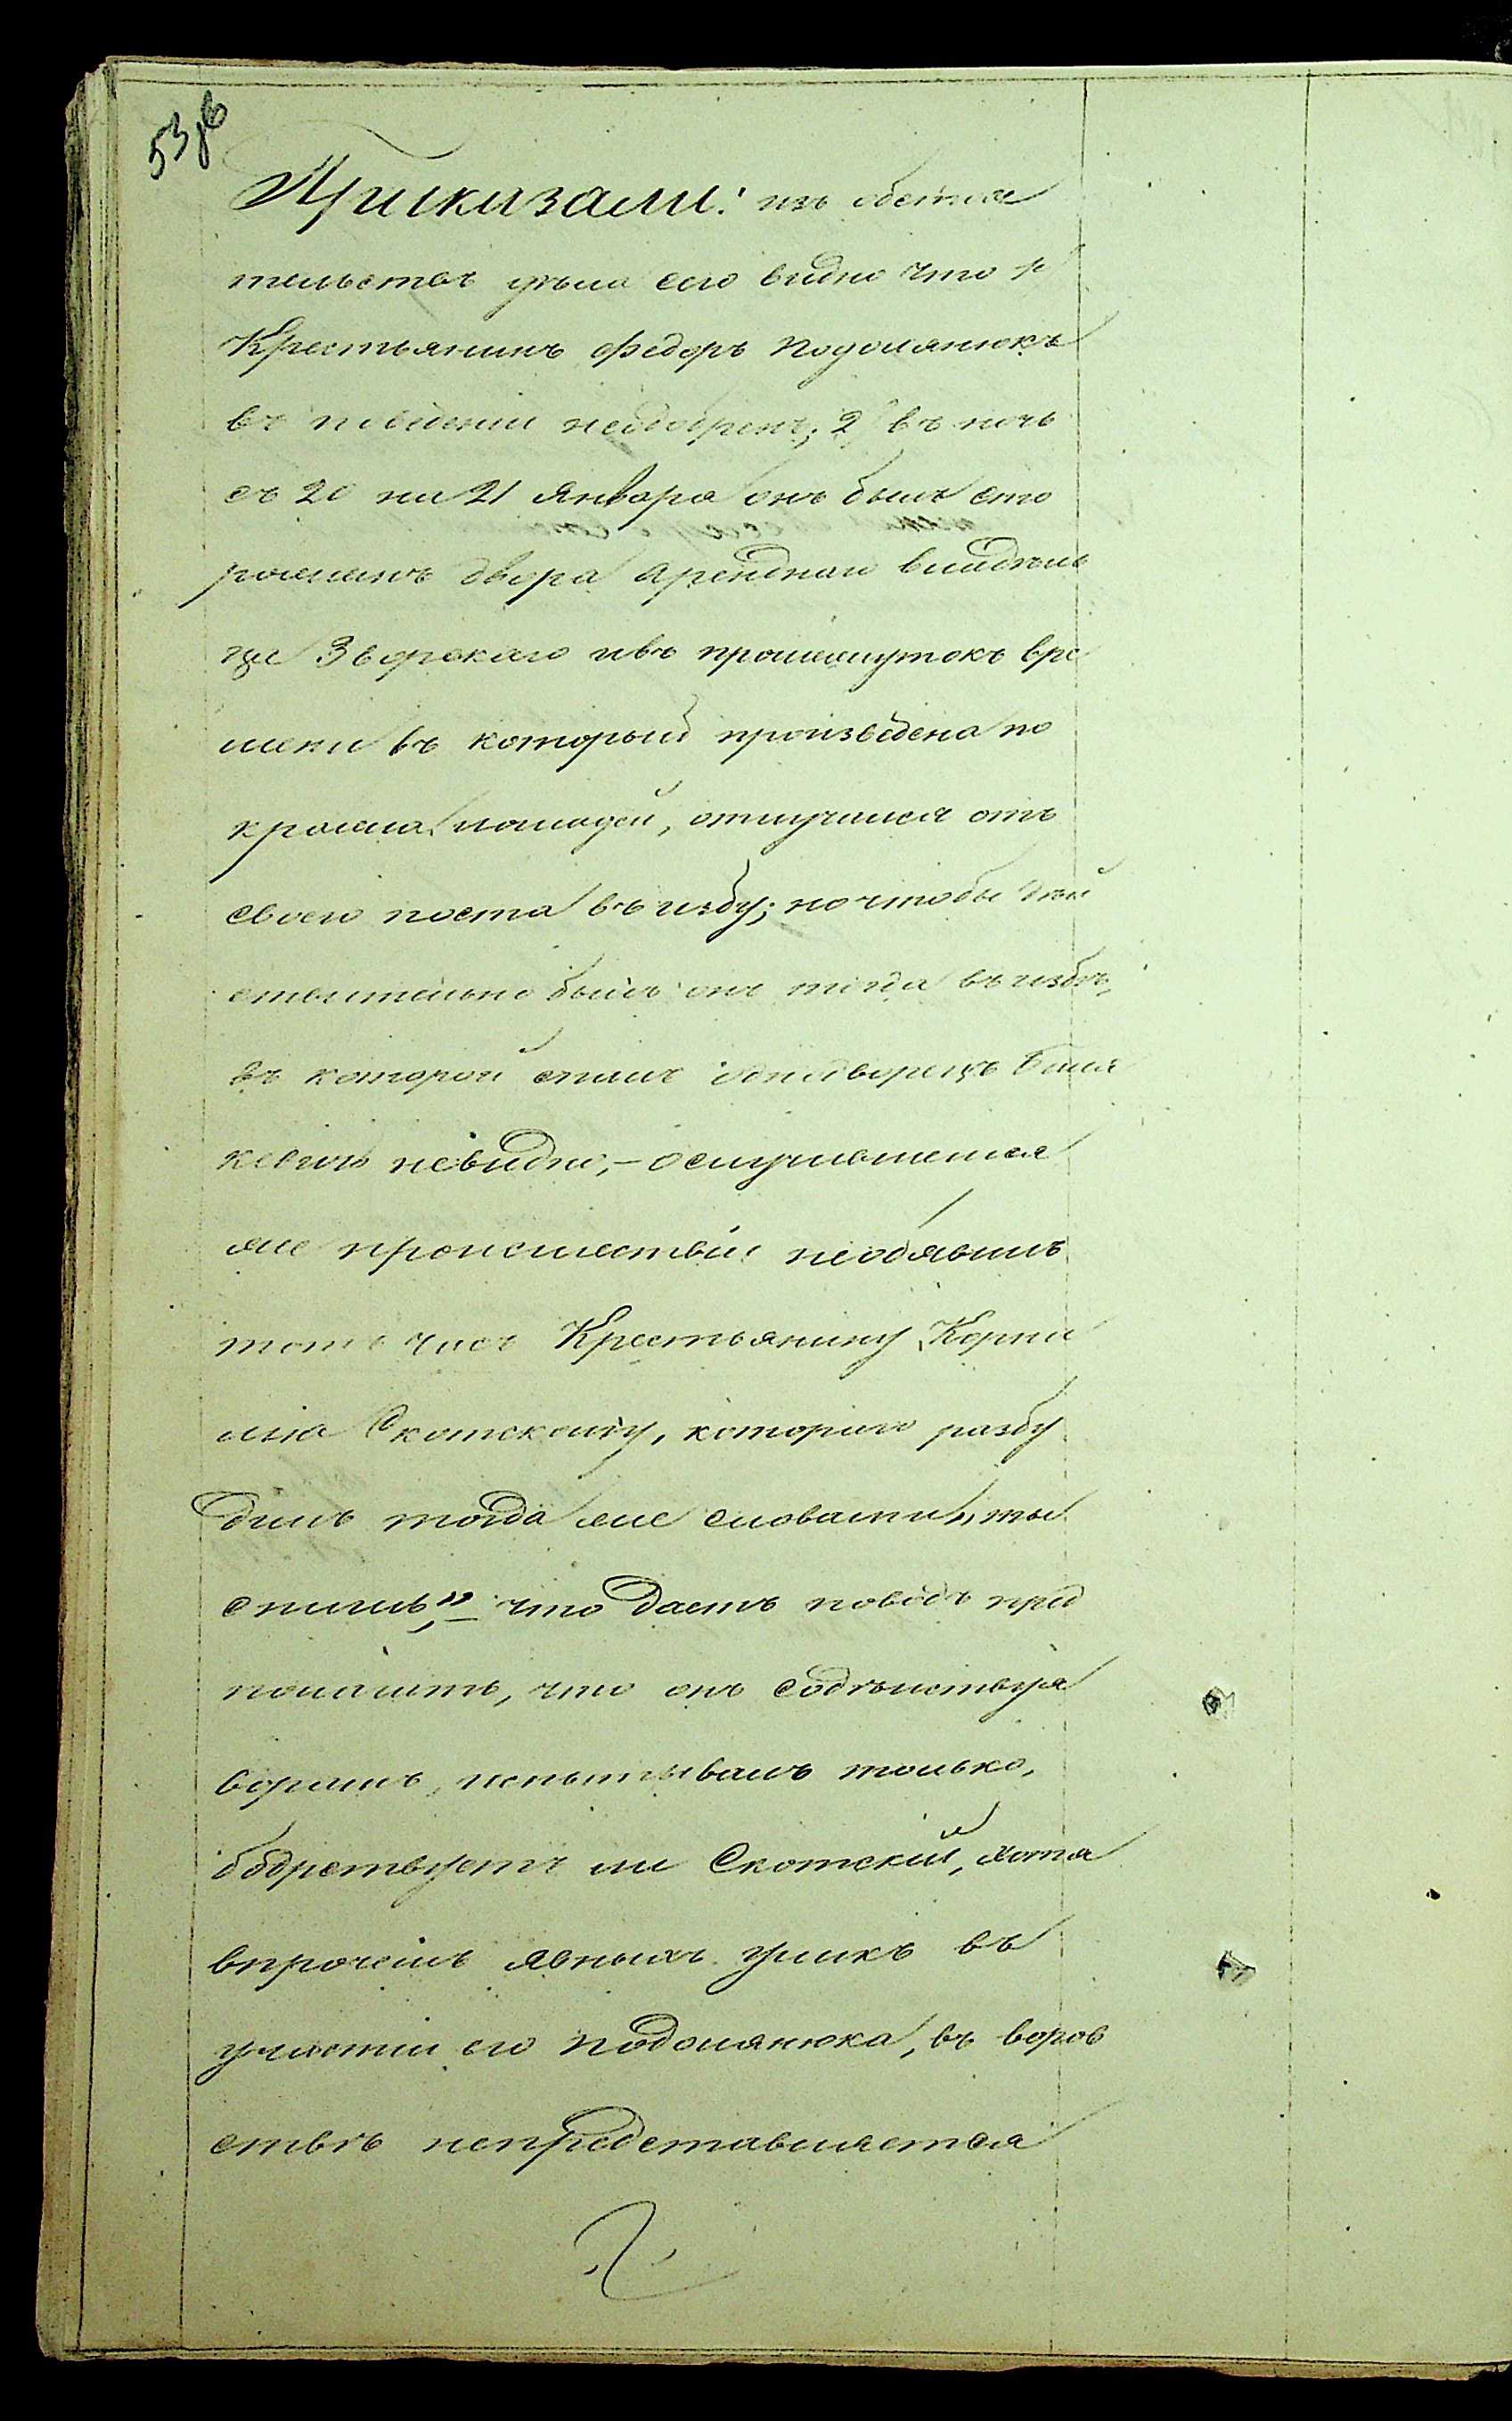 53 об
Приказали: изъ обстоя
тельствъ дѣла сего видно что 1)
Крестьянинъ Федоръ Подолянюкъ
въ поведеніи неодобренъ; 2) въ ночь
съ 20 на 21 Января онъ былъ сто
рожемъ двора Аренднаго владѣль
ца Зворскаго ивъ промежутокъ вре
мени въ который произведена по
кража лошадей, отлучился отъ
своего поста въ избу; но чтобы дѣй
ствительно былъ онъ тогда въ избѣ,
въ которой спалъ однодворецъ
кевичъ невидно, – ослучившемся
же происшествіи необявилъ
тотъ часъ Крестьянину Корни
лію Скотскому, котораго разбу
дилъ тогда же словами „ты
спишь,“ – что даетъ поводъ пред
полагать, что онъ содѣйствуя
ворамъ, испытывалъ только,
бодрствуетъ ли Скотскій, хотя
впрочемъ явныхъ уликъ въ
участіи его Подолянюка, въ воров
ствѣ непредставляется